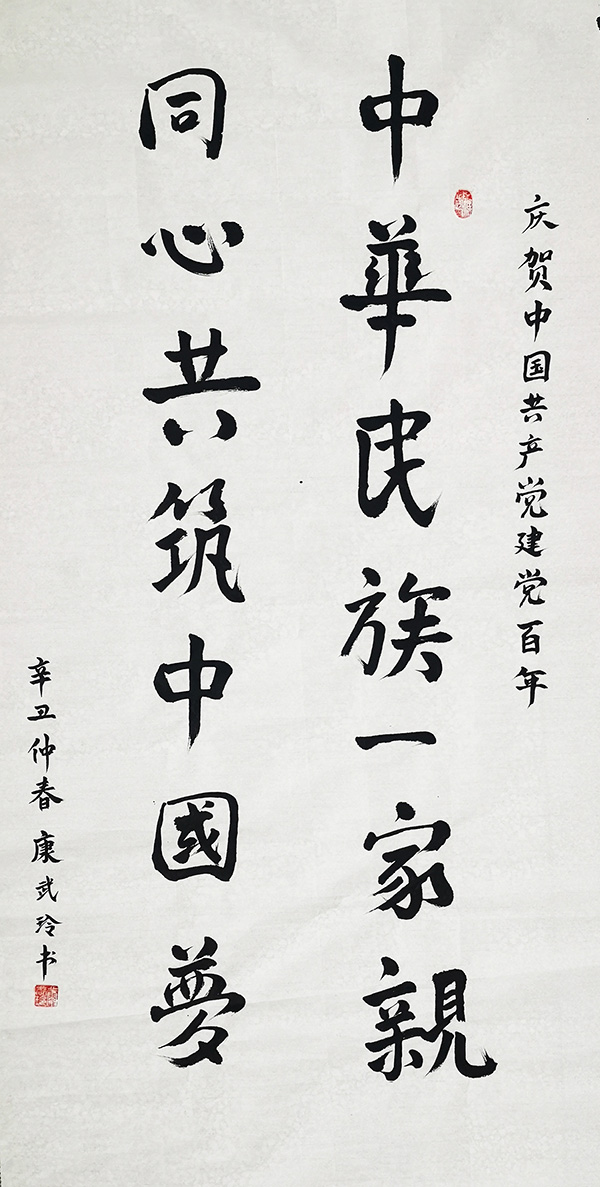 庆贺中国共产党建党百年
中華民族一家親
同心共筑中國夢
辛丑仲春康武玲书